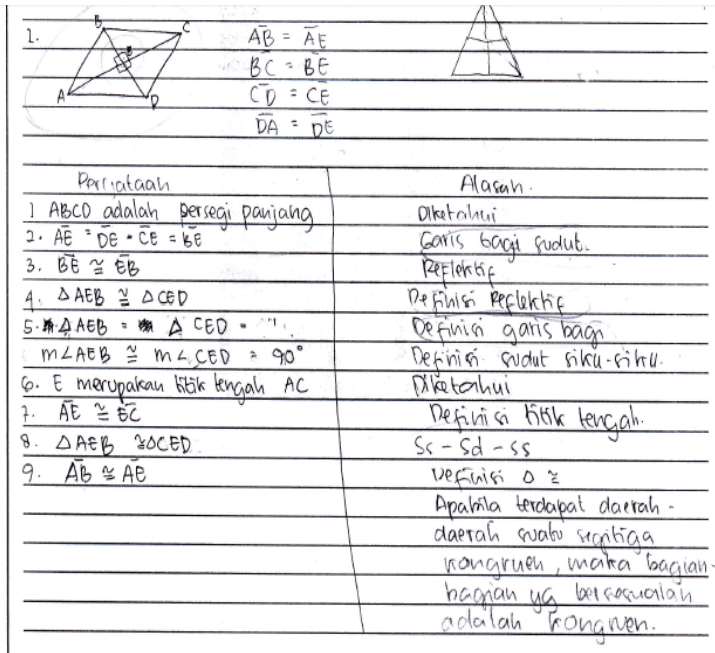 1.
B
C
E
A
D
AB = AE
BC = BE
CD = CE
DA = DE
Pernyataan
Alasan.
1 ABCD adalah persegi panjang
Diketahui
2. AE = DE = CE = BE
Garis bagi sudut.
3. BE ≅ EB
Reflektif
4. △AEB ≅ △CED
Definisi Reflektif
5. △AEB = △ CED =
Definisi garis bagi
m∠AEB ≅ m∠CED = 90°
Definisi sudut siku-siku.
6. E merupakan titik tengah AC
Diketahui
7. AE ≅ EC
Definisi titik tengah.
8. △AEB ≅△CED
Ss - Sd - ss
9. AB ≅ AE
Definisi △ ≅
Apabila terdapat daerah -
daerah suatu segitiga
kongruen, maka bagian-
bagian yg bersesuaian
adalah kongruen.